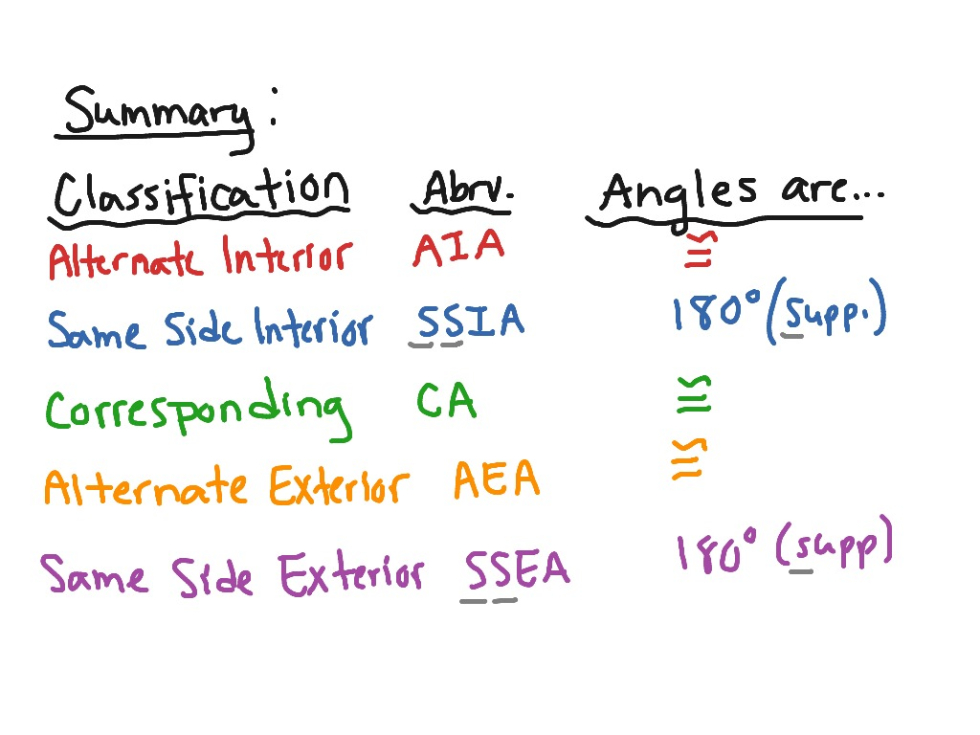 Summary:
Classification Abrv. Angles are...
Alternate Interior AIA ≅
Same Side Interior SSIA 180° (supp.)
Corresponding CA ≅
Alternate Exterior AEA ≅
Same Side Exterior SSEA 180° (supp)